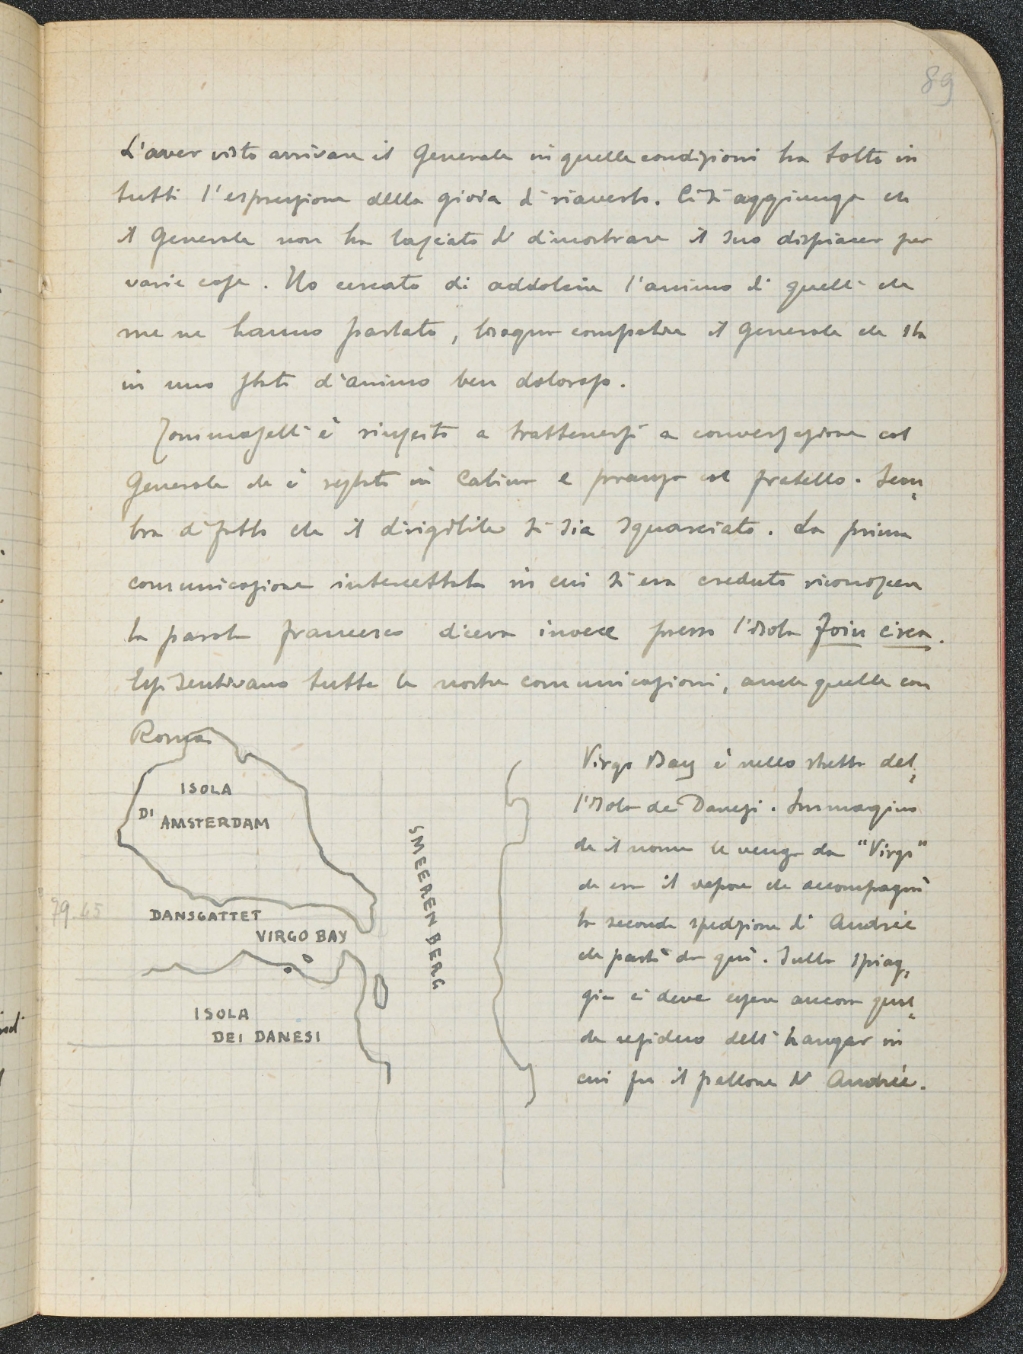 89
L'aver visto arrivare il Generale in quelle condizioni ha tolto in
tutti l'espressione della gioia di riaverlo. Ci si aggiunga che
il Generale non ha lasciato di dimostrare il suo dispiacer per
varie cose. Ho cercato di addolcire l'animo di quelli che
me ne hanno parlato, bisogna compatire il Generale che sta
in uno stato d'animo ben doloroso.
Tommaselli è riuscito a trattenersi a conversazione col
Generale che è restato in Cabina e pranza col fratello. Sem-
bra difatto che il dirigibile si sia squarciato. La prima
comunicazione intercettata in cui si era creduto riconoscere
la parola francesco diceva invece presso l'isola Foin circa.
Essi sentivano tutte le nostre comunicazioni, anche quelle con
Roma.
ISOLA
DI AMSTERDAM
SMEERENBERG
79.65
DANSGATTET
VIRGO BAY
ISOLA
DEI DANESI
Virgo Bay è nello stretto del-
l'Isola dei Danesi. Immagino
che il nome le venga da "Virgo"
che era il vapore che accompagnò
la seconda spedizione di Andrée
che partì da qui. Sulla spiag-
gia ci deve essere ancora qual-
che residuo dell'hangar in
cui fu il pallone di Andrée.